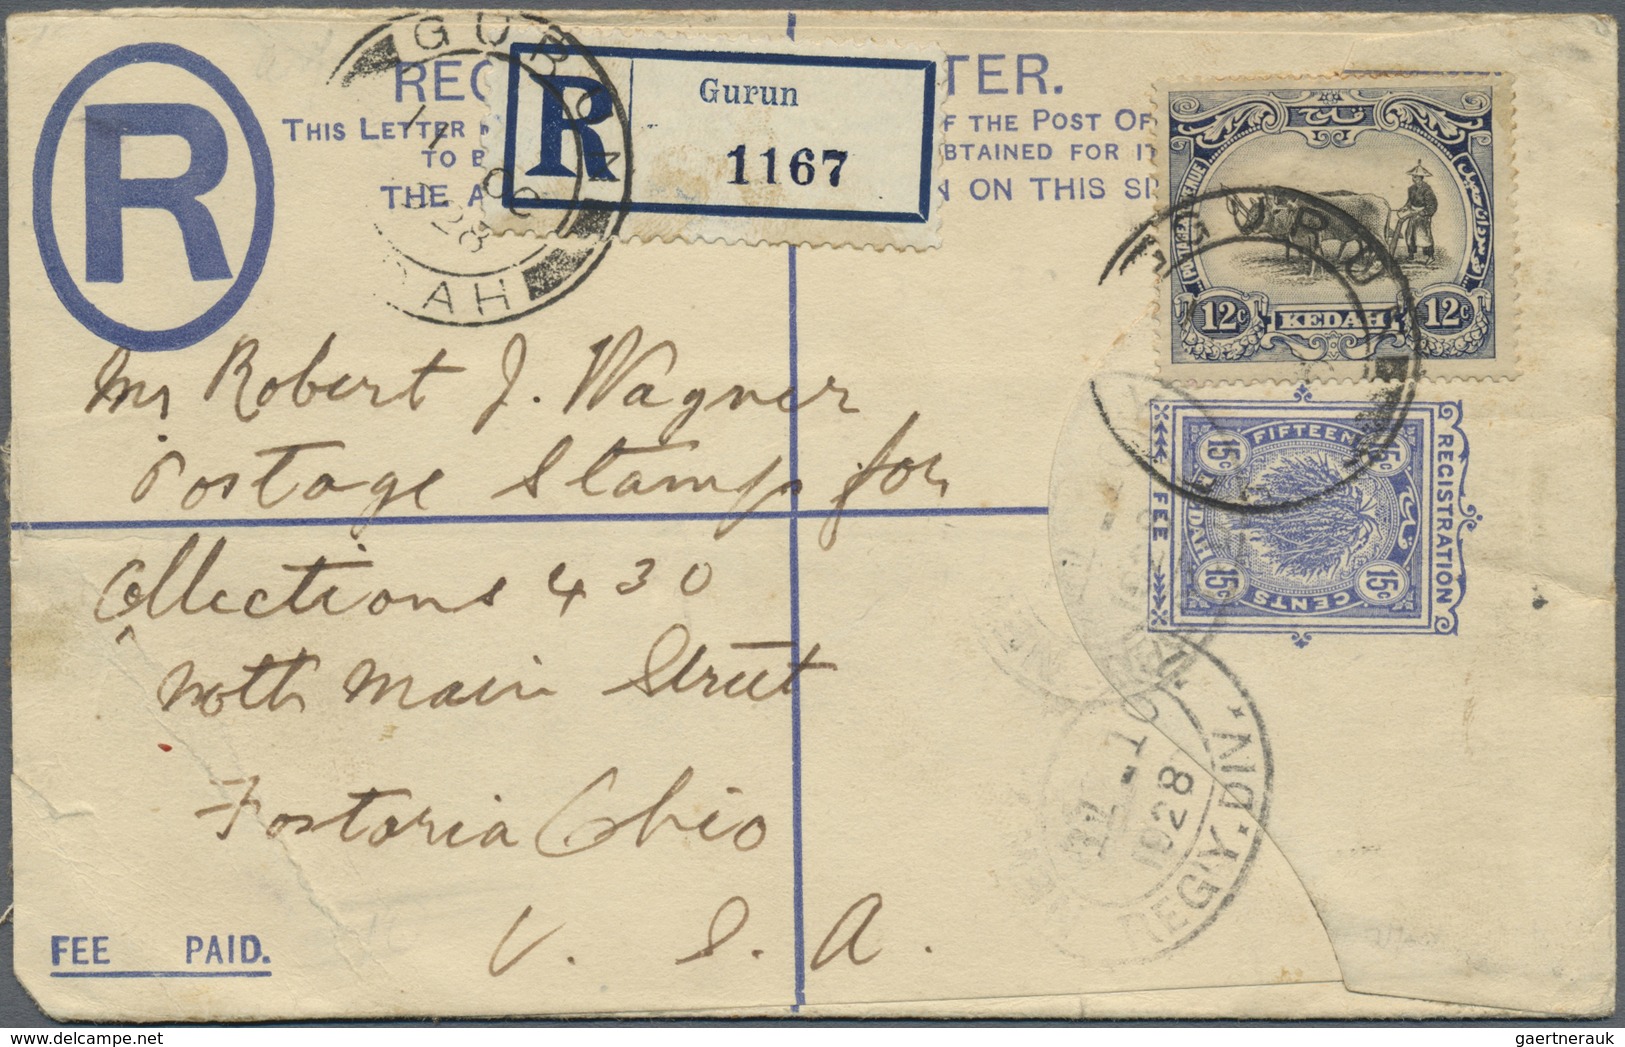 GURUN
11 OC
28
AH
R
REG TER.
THIS LETTER F THE POST OF
TO B BTAINED FOR IT
THE A N ON THIS SI
R
Gurun
1167
POSTAGE & REVENUE
12c KEDAH 12c
GURU
FIFTEEN
CENTS
15c 15c
15c 15c
REGISTRATION
FEE
Mr Robert J. Wagner
Postage Stamp for
Collections 430
North Main Street
Fostoria Ohio
U. S. A.
1928
REG'Y. DIV.
FEE PAID.
gaertnerauk